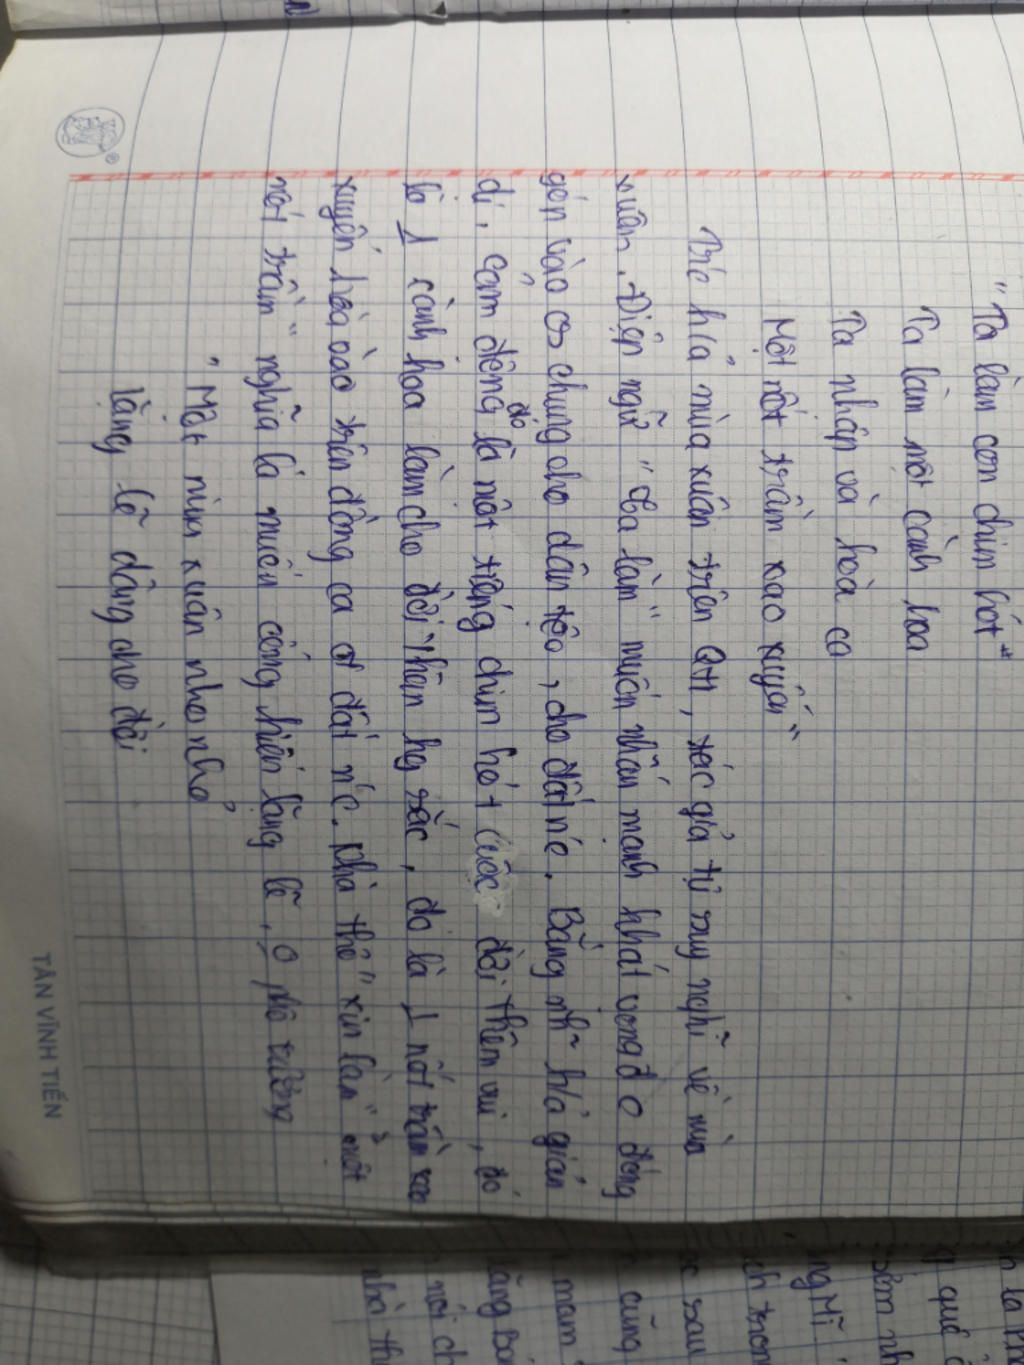 "Ta làm con chim hót"
Ta làm một cành hoa
Ta nhập và hoà ca
Một nốt trầm xao xuyến"
Trc h/ả mùa xuân trên QH, tác giả tự suy nghĩ về mùa
xuân. Điệp ngữ "ta làm" muốn nhấn mạnh khát vọng đc đóng
góp vào cs chung cho dân tộc, cho đất nc. Bằng nh~ h/ả giản
dị, cảm động đó là một tiếng chim hót cuộc đời thêm vui, đó
là 1 cành hoa làm cho đời thêm hg sắc, đó là 1 nốt trầm xao
xuyến hoà vào trên đồng ca of đất nc. Nhà thơ "xin làm" một
nốt trầm" nghĩa là muốn cống hiến lặng lẽ, o phô trương
"Một mùa xuân nho nhỏ
lặng lẽ dâng cho đời
TÂN VĨNH TIẾN